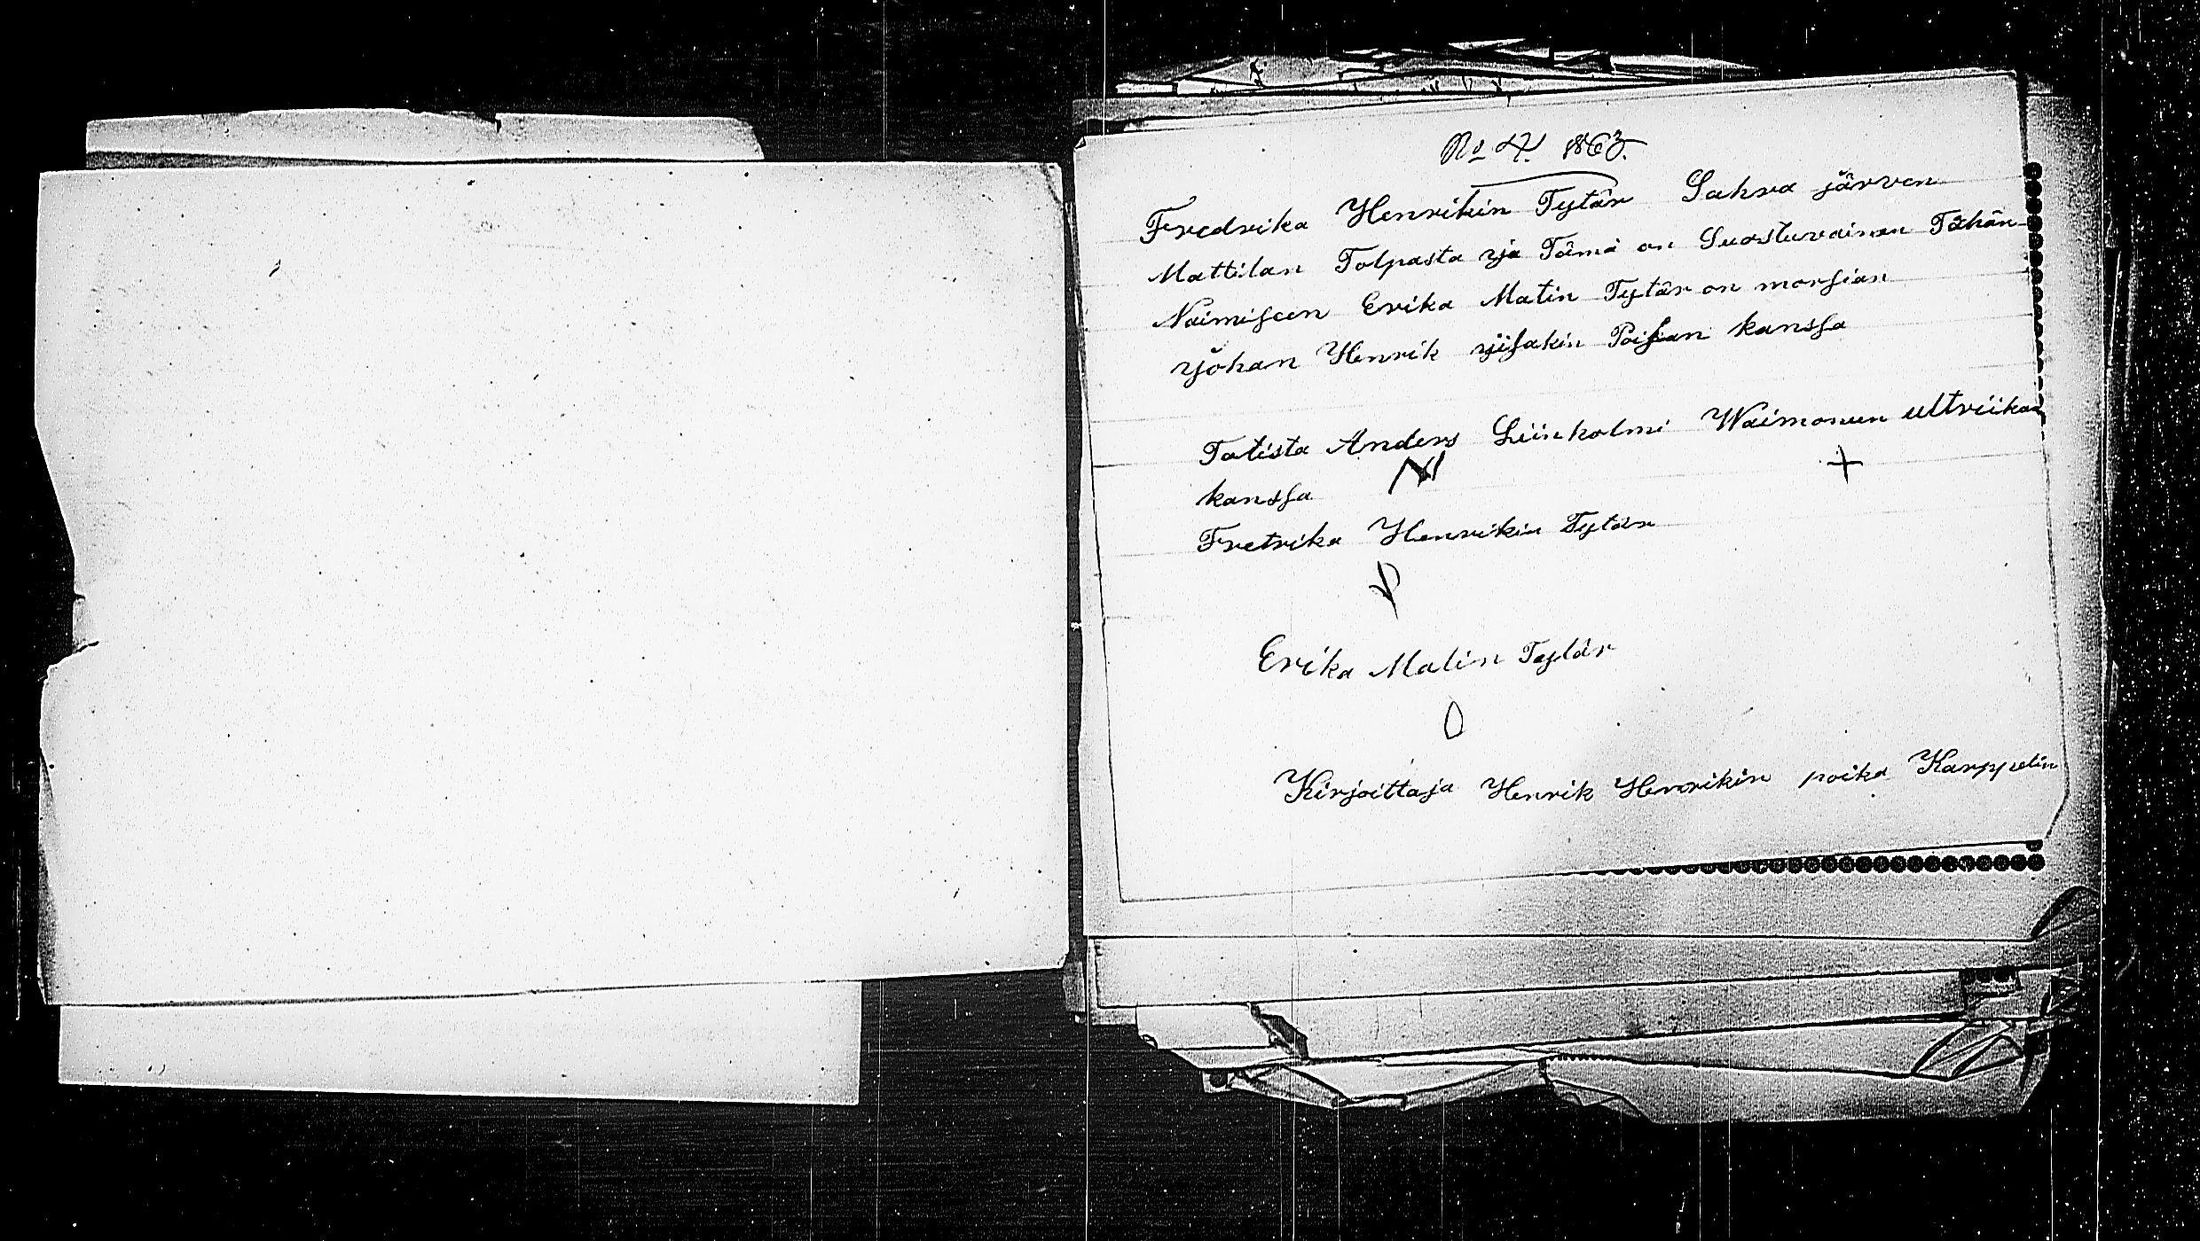 No 4. 1863.
Fredrika Henrikin Tytär Sahra järven
Mattilan Tolpasta ja Tämä on Suostuvainen Tähän
Naimiseen Erika Matin Tytär on morsian
johan Henrik iisakin Poijan kanssa
Totista Anders Liinholmi Waimonun ultriikan
kanssa
Fretrika Henrikin Tytär
Erika Matin Tytär
Kirjoittaja Henrik Henrikin poika Karppelin